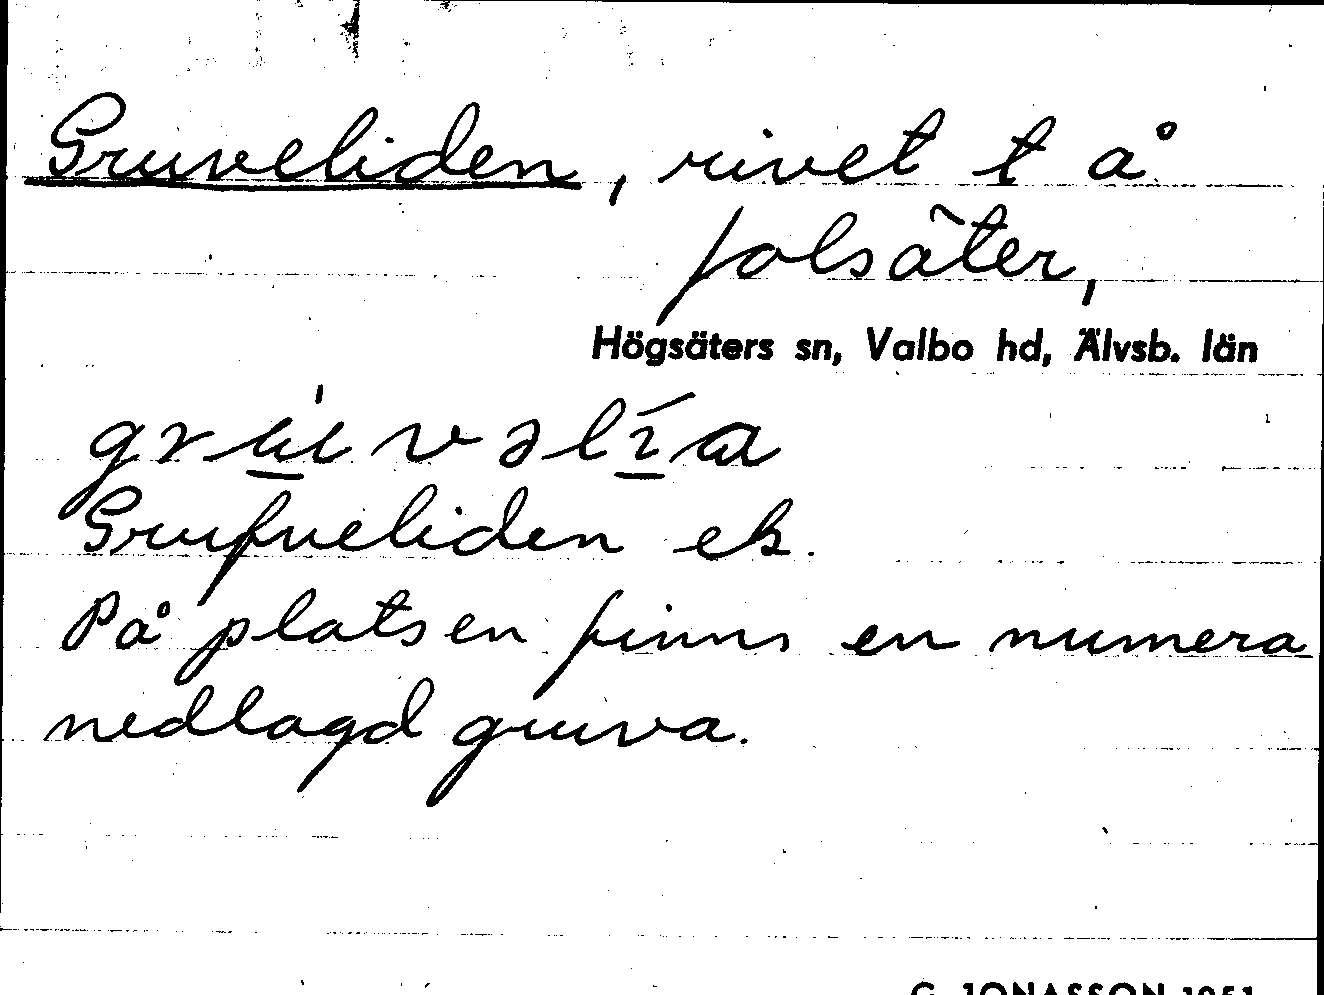 Gruveliden, rivet t å
Jolsäter,
Högsäters sn, Valbo hd, Älvsb. län
Grufveliden ek.
På platsen finns en numera
nedlagd gruva.
G. JONASSON 1951